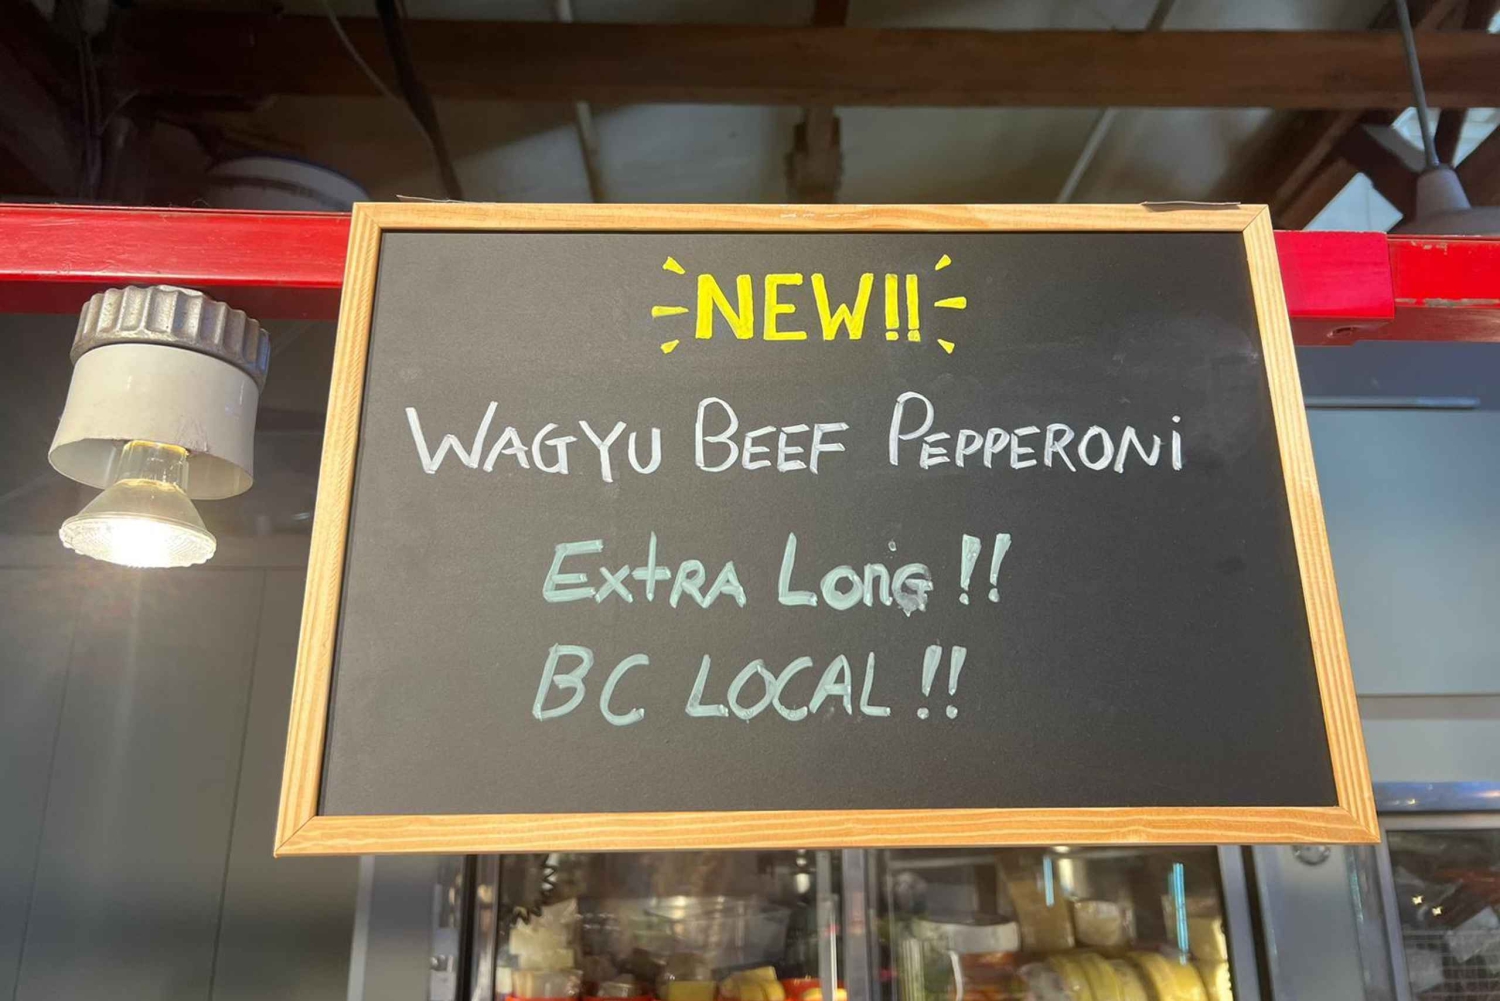 NEW!!
WAGYU BEEF PEPPERONi
ExtRA LonG!!
BC LOCAL!!